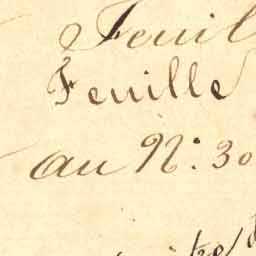 Feuil
Feuille
au N: 30